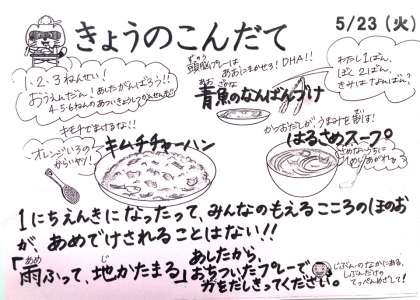 きょうのこんだて
5/23（火）
1・2・3ねんせい！
おうえんだン！あしたがんばろう！！
4・5・6ねんの
頭脳プレーは
あおにまかせろ！DHA!!
青魚のなんばんづけ
わたし1ばん、
ぼく2ばん、
きみはなんばん？
キモチでまけるな！！
オレンジいろの
からいヤツ！
キムチチャーハン
かつおだしが、うまけを
はるさめスープ
さめないうちに
めしあがれ
1にちえんきになったって、みんなのもえるこころのほのお
が、あめでけされることはない！！
「雨ふって、地かたまる」
あしたから、
おちついたプレーで
力をだしきってください。
じぶんのなかにある、
じぶんだけの
てっぺんめざして！